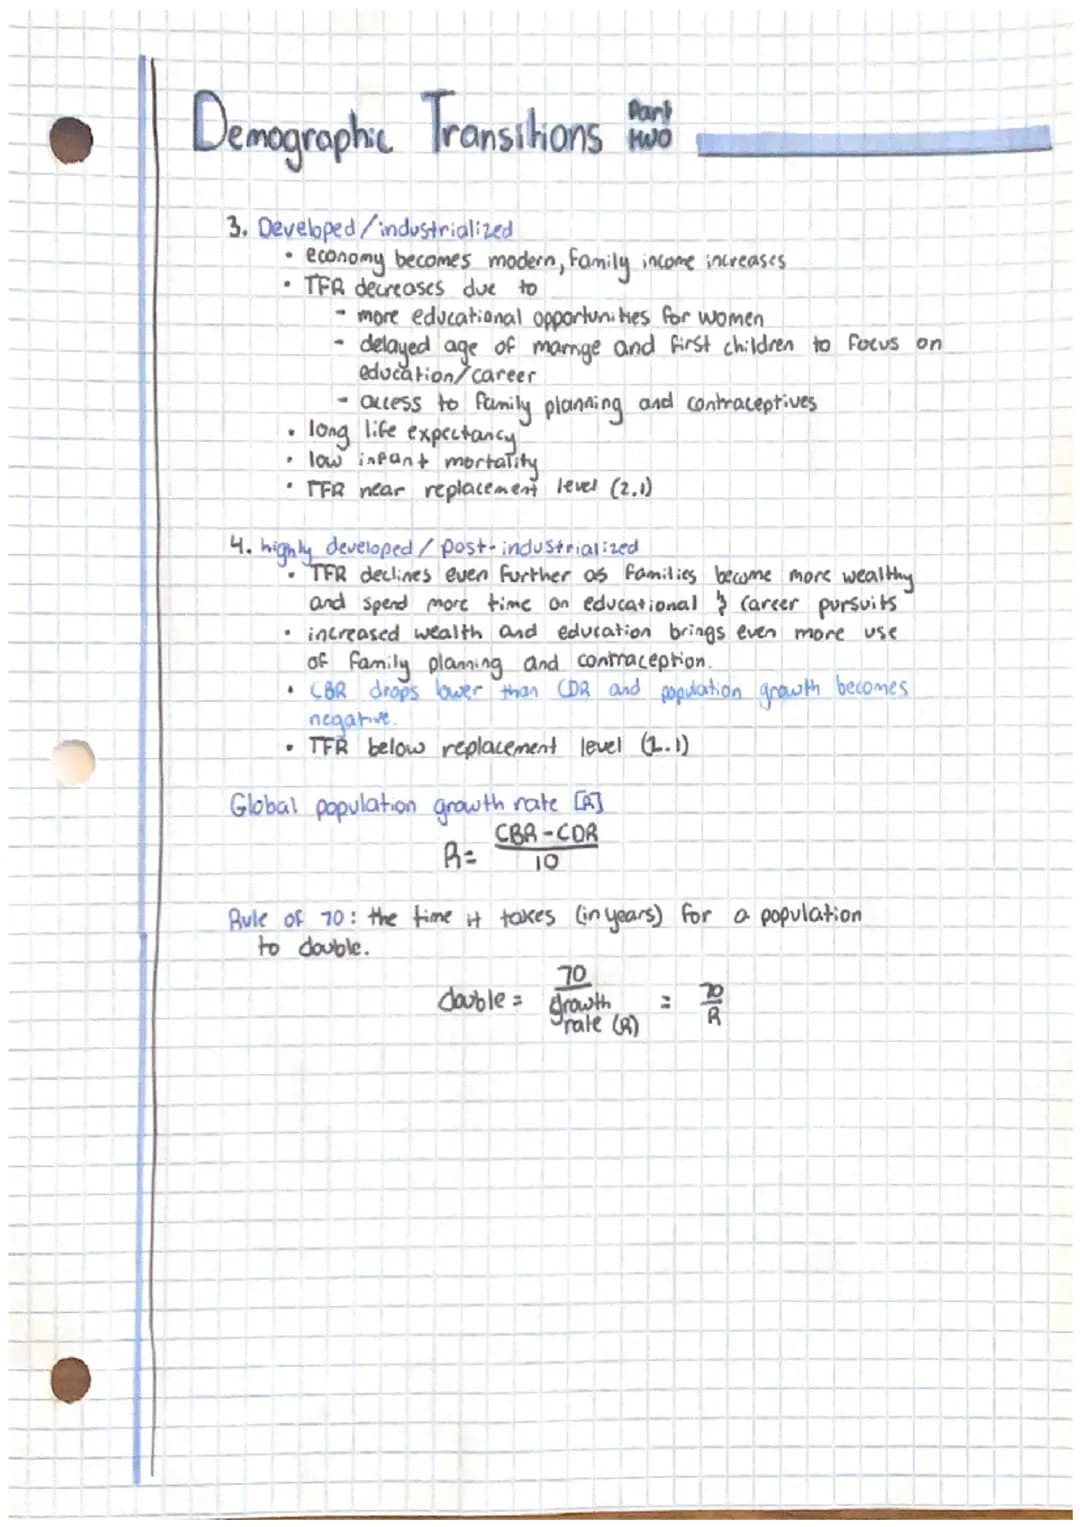 Demographic Transitions Part two
3. Developed/industrialized
• economy becomes modern, family income increases
• TFR decreases due to
- more educational opportunities for women
- delayed age of marrige and first children to focus on
education/career
- access to family planning and contraceptives
• long life expectancy
• low infant mortality
• TFR near replacement level (2.1)
4. highly developed / post-industrialized
• TFR declines even further as families become more wealthy
and spend more time on educational & career pursuits
• increased wealth and education brings even more use
of family planning and contraception.
• CBR drops lower than CDR and population growth becomes
negative.
• TFR below replacement level (2.1)
Global population growth rate [R]
R = CBR - CDR / 10
Rule of 70: the time it takes (in years) for a population
to double.
double = 70 / growth rate (R) = 70 / R